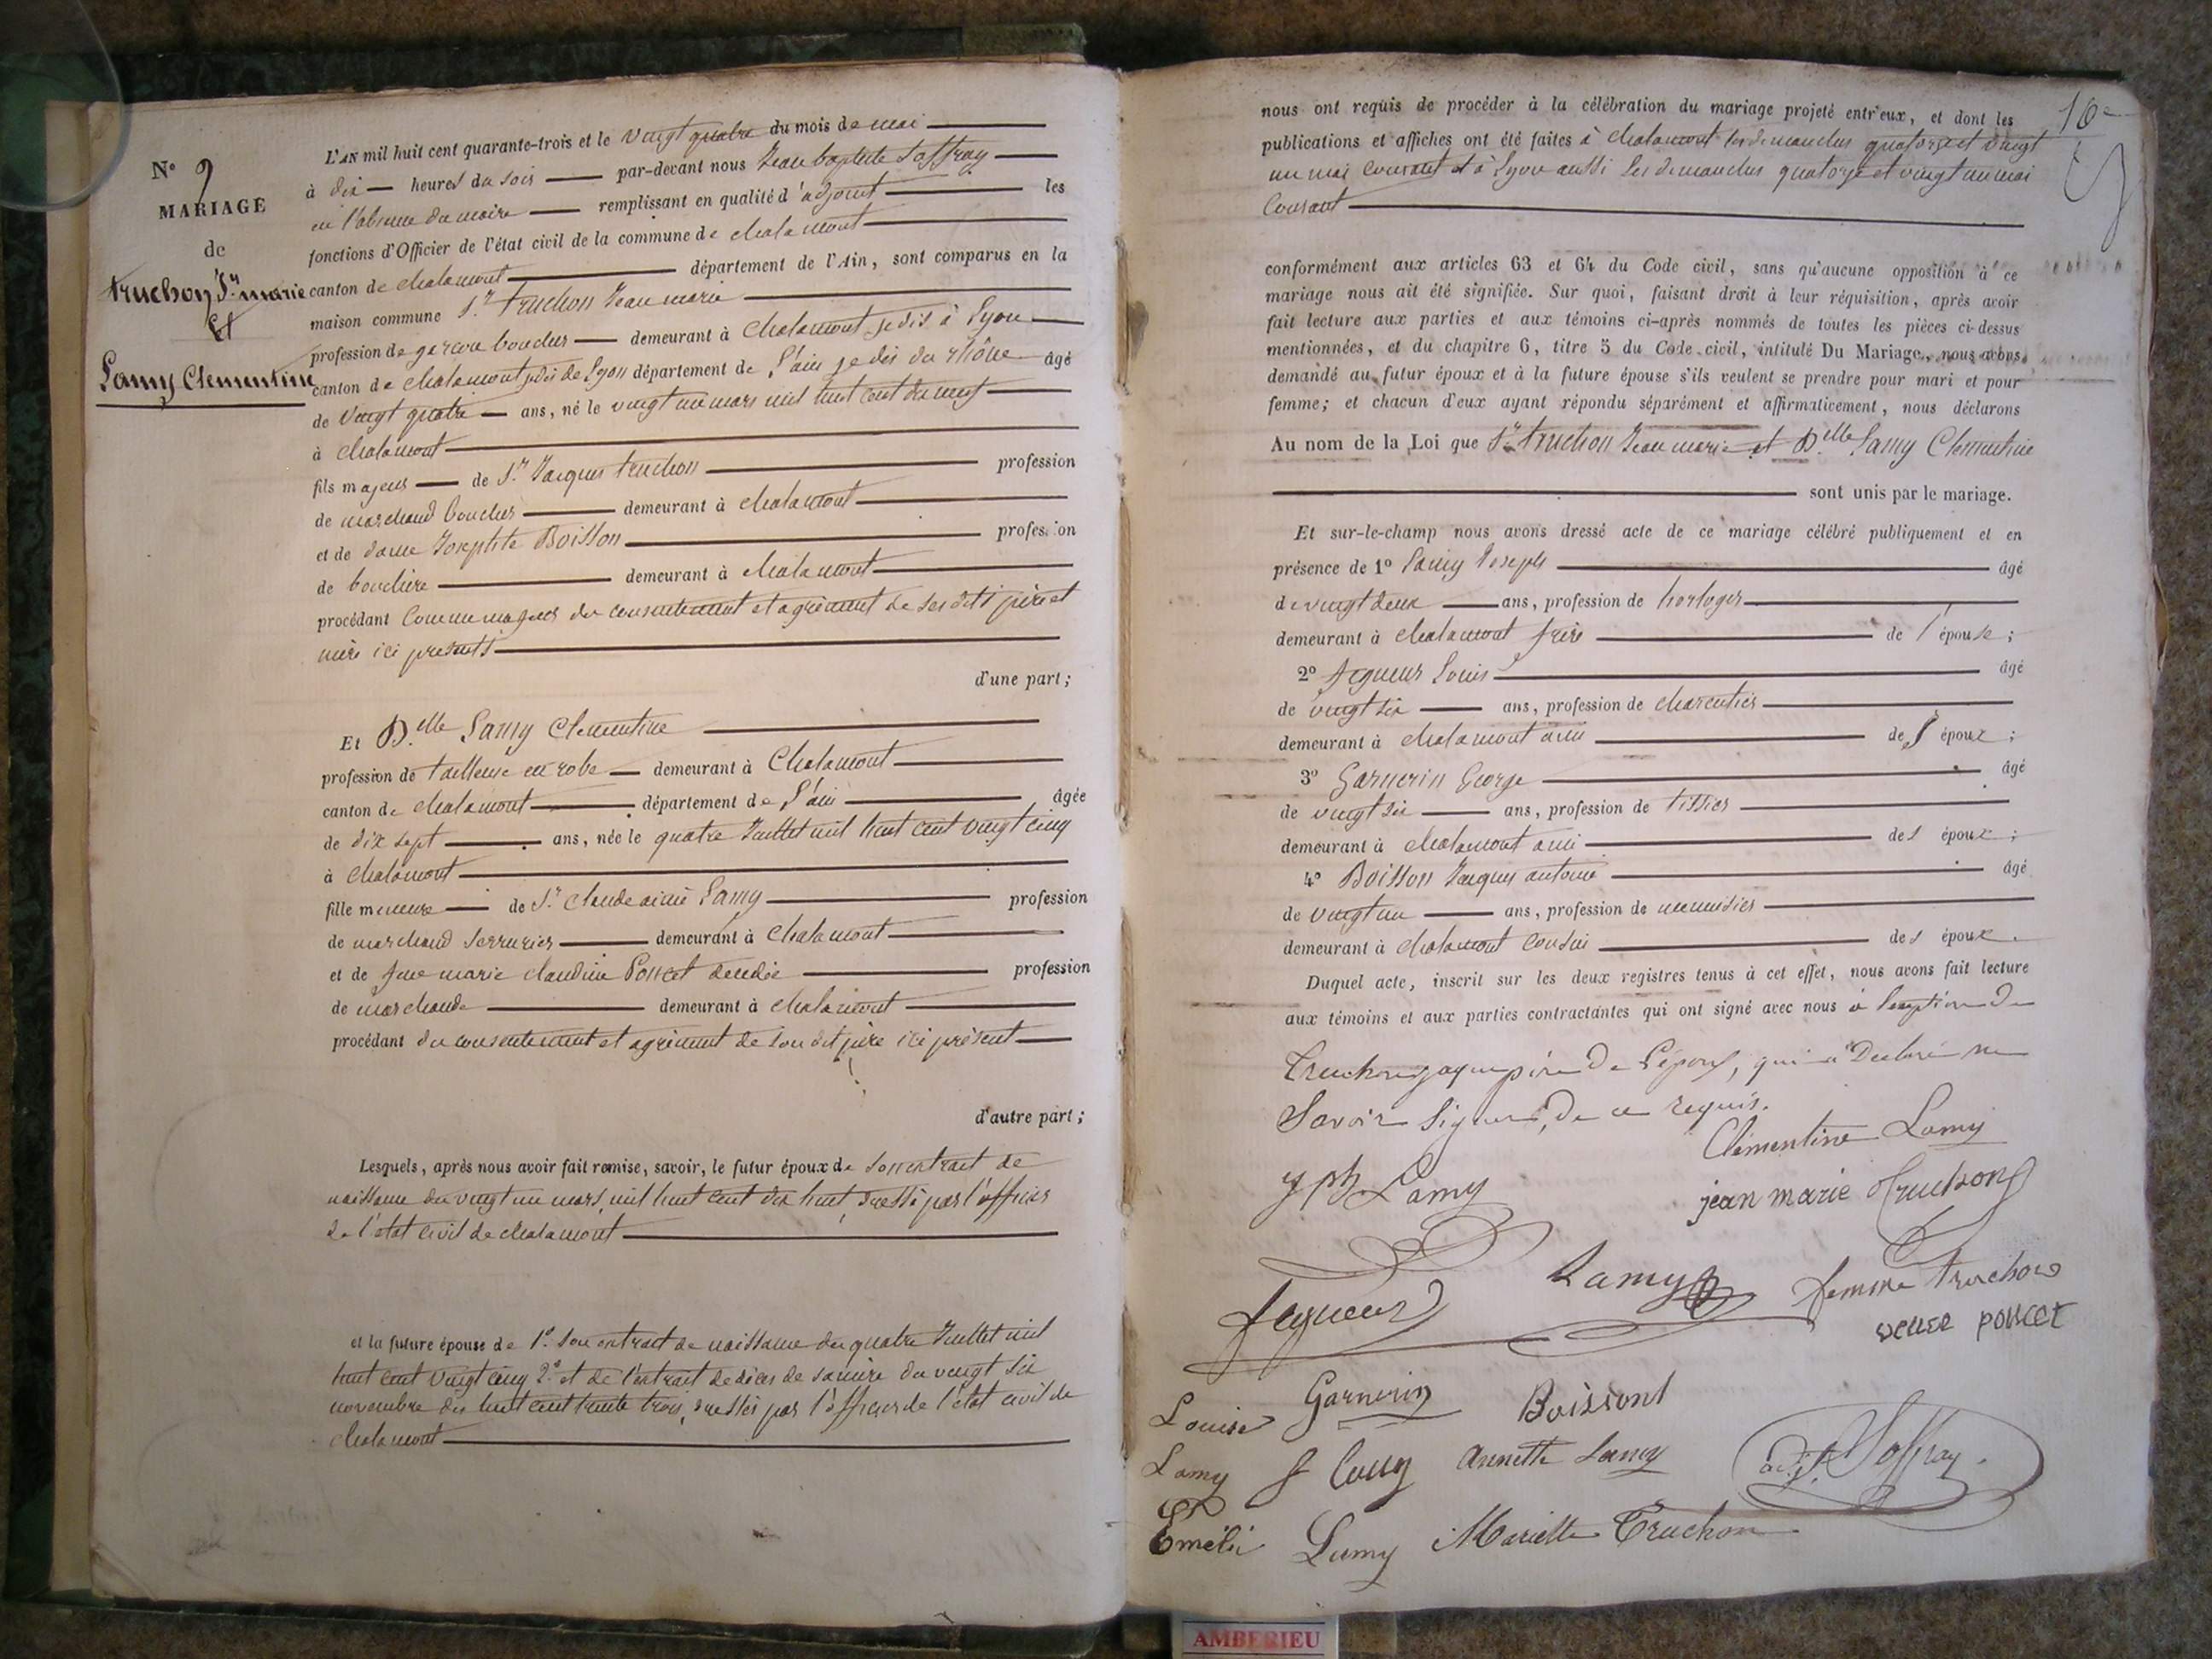 N° 9
MARIAGE
de
Truchon Jn marie
Et
Lamy Clementine
L'AN mil huit cent quarante-trois et le vingt quatre du mois de mai
à dix heures du soir par-devant nous Jean baptiste Soffray
en l'absence du maire remplissant en qualité d'adjoint les
fonctions d'Officier de l'état civil de la commune de chalamont
canton de chalamont département de l'Ain, sont comparus en la
maison commune Sr. Truchon Jean marie
profession de garcon boucher demeurant à Chalamont je dis à Lyon
canton de chalamont je dis de Lyon département de L'ain je dis du rhône âgé
de vingt quatre ans, né le vingt un mars mil huit cent dix neuf
à chalamont
fils majeur de Sr. Jacques Truchon profession
de marchand boucher demeurant à chalamont
et de dame Josephte Boisson profession
de bouchère demeurant à chalamont
procédant comme majeur du consentement et agrément de ses dits père et
mère ici presents
d'une part;
Et Delle Lamy Clementine
profession de tailleuse en robe demeurant à Chalamont
canton de chalamont département de L'ain âgée
de dix sept ans, née le quatre Juillet mil huit cent vingt cinq
à chalamont
fille mineure de Sr. Claude aimé Lamy profession
de marchand serrurier demeurant à Chalamont
et de feue marie claudine Poncet profession
de marchande demeurant à chalamont
procédant du consentement et agrément de son dit père ici présent
d'autre part;
Lesquels, après nous avoir fait remise, savoir, le futur époux de son extrait de
naissance du vingt un mars mil huit cent dix huit, dressé par l'officier
de l'état civil de chalamont
et la future épouse de 1° son extrait de naissance du quatre Juillet mil
huit cent vingt cinq 2° et de l'extrait de décès de sa mère du vingt six
novembre dix huit cent trente trois, dressés par l'officier de l'état civil de
chalamont
16e
nous ont requis de procéder à la célébration du mariage projeté entr'eux, et dont les
publications et affiches ont été faites à chalamont les dimanches quatorze et vingt
un mai courant et à Lyon aussi les dimanches quatorze et vingt un mai
courant
conformément aux articles 63 et 64 du Code civil, sans qu'aucune opposition à ce
mariage nous ait été signifiée. Sur quoi, faisant droit à leur réquisition, après avoir
fait lecture aux parties et aux témoins ci-après nommés de toutes les pièces ci-dessus
mentionnées, et du chapitre 6, titre 5 du Code civil, intitulé Du Mariage, nous avons
demandé au futur époux et à la future épouse s'ils veulent se prendre pour mari et pour
femme; et chacun d'eux ayant répondu séparément et affirmativement, nous déclarons
Au nom de la Loi que Sr. Truchon Jean marie et Delle Lamy Clementine
sont unis par le mariage.
Et sur-le-champ nous avons dressé acte de ce mariage célébré publiquement et en
présence de 1° Lamy Joseph âgé
de vingt deux ans, profession de horloger
demeurant à chalamont frère de l'épouse;
2° Louis âgé
de vingt six ans, profession de charcutier
demeurant à chalamont ami de l'époux;
3° Garnerin George âgé
de vingt six ans, profession de tissier
demeurant à chalamont ami des époux;
4° Boisson Jacques antoine âgé
de vingt un ans, profession de menuisier
demeurant à chalamont cousin des époux.
Duquel acte, inscrit sur les deux registres tenus à cet effet, nous avons fait lecture
aux témoins et aux parties contractantes qui ont signé avec nous à l'exeption de
Truchon jaque père de l'époux, qui a Déclaré ne
Savoir Signer, de ce requis.
Clémentine Lamy
jph Lamy
jean marie Truchon
Lamy
femme truchon
veuve poncet
Louise
Garnerin
Boissont
Lamy
Annette Lamy
adjt. Soffray
Emélie Lamy
Mariette Truchon
AMBERIEU